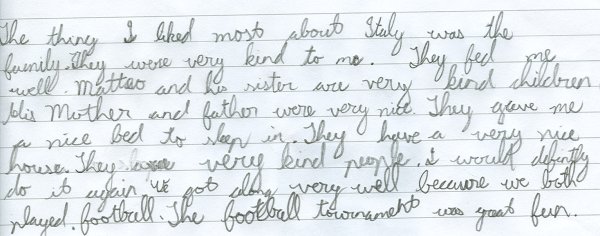 The thing I liked most about Italy was the
family. They were very kind to me. They fed me
well. Matteo and his sister are very kind children
His Mother and father were very nice. They gave me
a nice bed to sleep in. They have a very nice
house. They very kind people. I would defintly
do it again we got along very well because we both
played football. The football tournament was great fun.